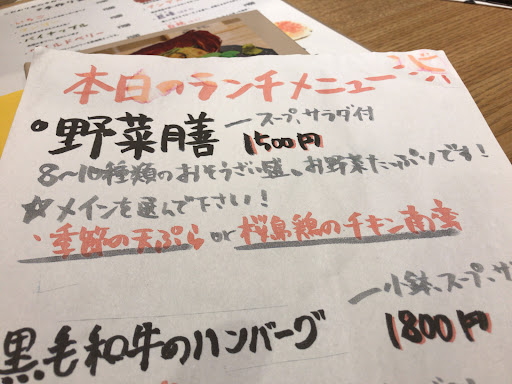 本日のランチメニュー
野菜膳 ースープ、サラダ付
1500円
8〜10種類のおそうざい盛、お野菜たっぷりです！
☆メインを選んで下さい！
・季節の天ぷら or 桜島鶏のチキン南蛮
ー小鉢、スープ、サ
黒毛和牛のハンバーグ 1800円